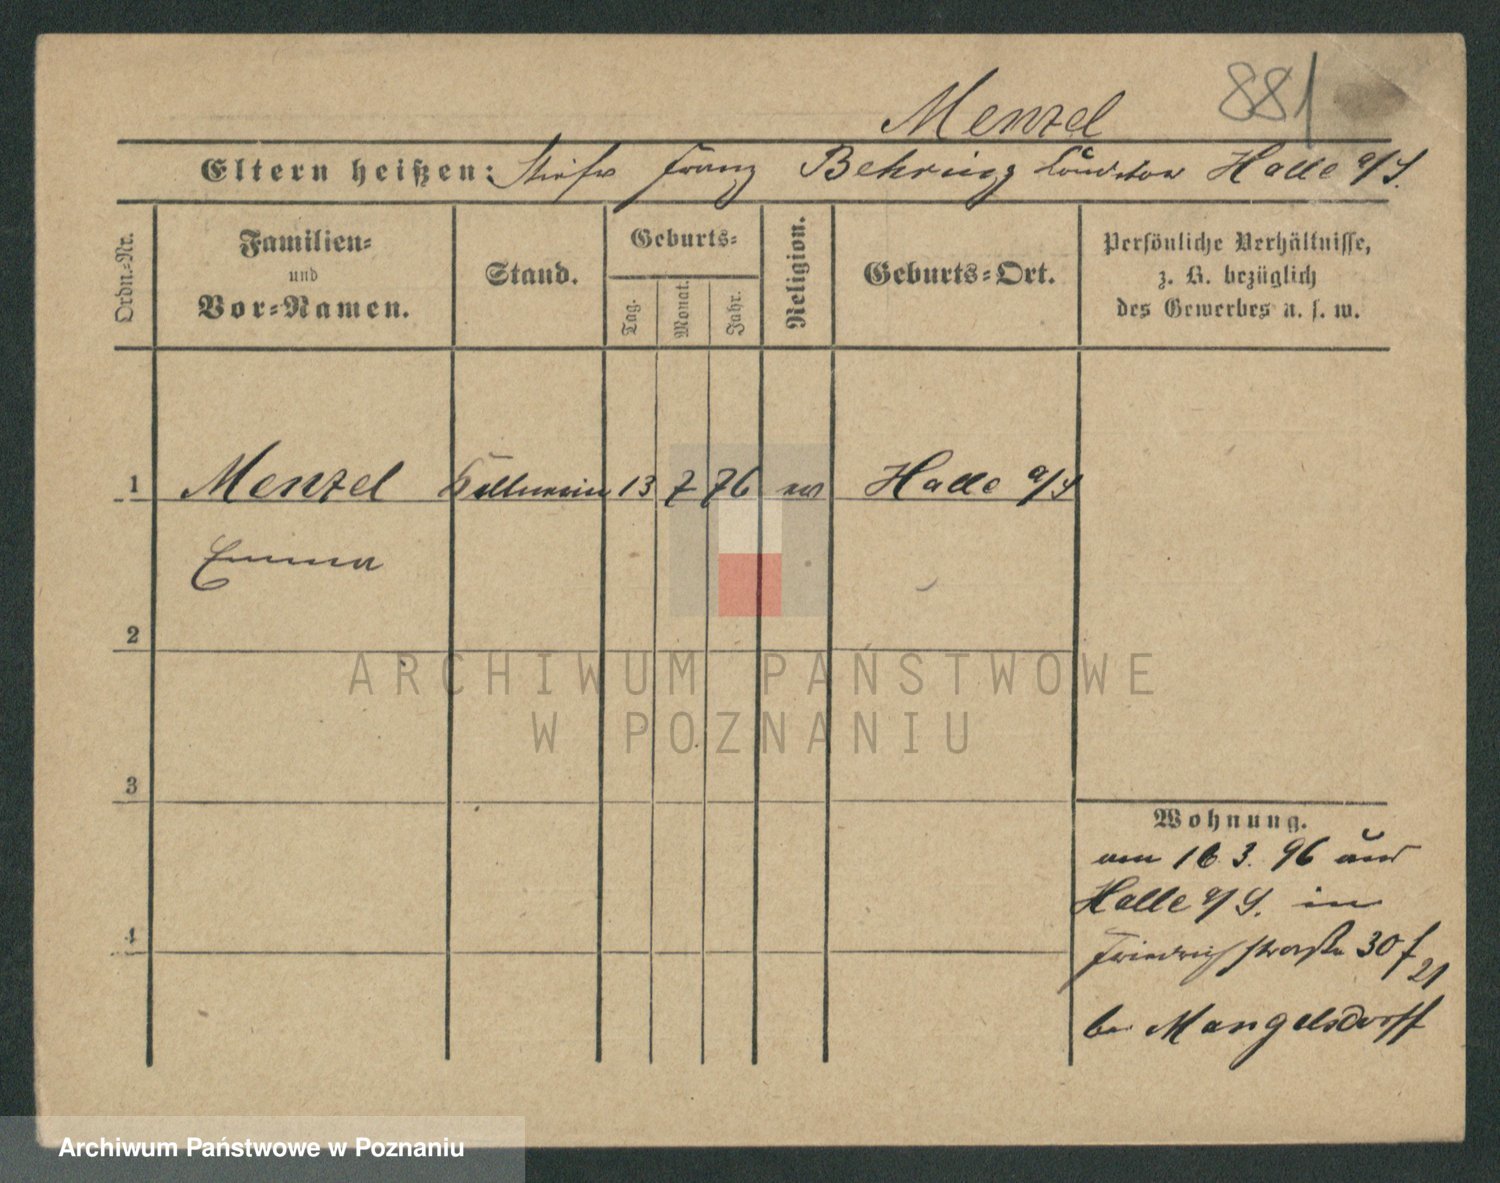 881
Menzel
Eltern heißen: Stiefv Franz Behring Conditor Halle a/S.
Ordn.-Nr.
Familien-
und
Vor-Namen.
Stand.
Geburts-
Tag.
Monat.
Jahr.
Religion.
Geburts-Ort.
Persönliche Verhältnisse,
z. B. bezüglich
des Gewerbes u. s. w.
1 Menzel Kellnerin 13 7 76 ev Halle a/S
Emma
2
3
4
Wohnung.
am 16 3. 96 aus
Halle a/S. in
Friedrichstraße 30 f
21
bei Mangelsdorff
ARCHIWUM PAŃSTWOWE
W POZNANIU
Archiwum Państwowe w Poznaniu